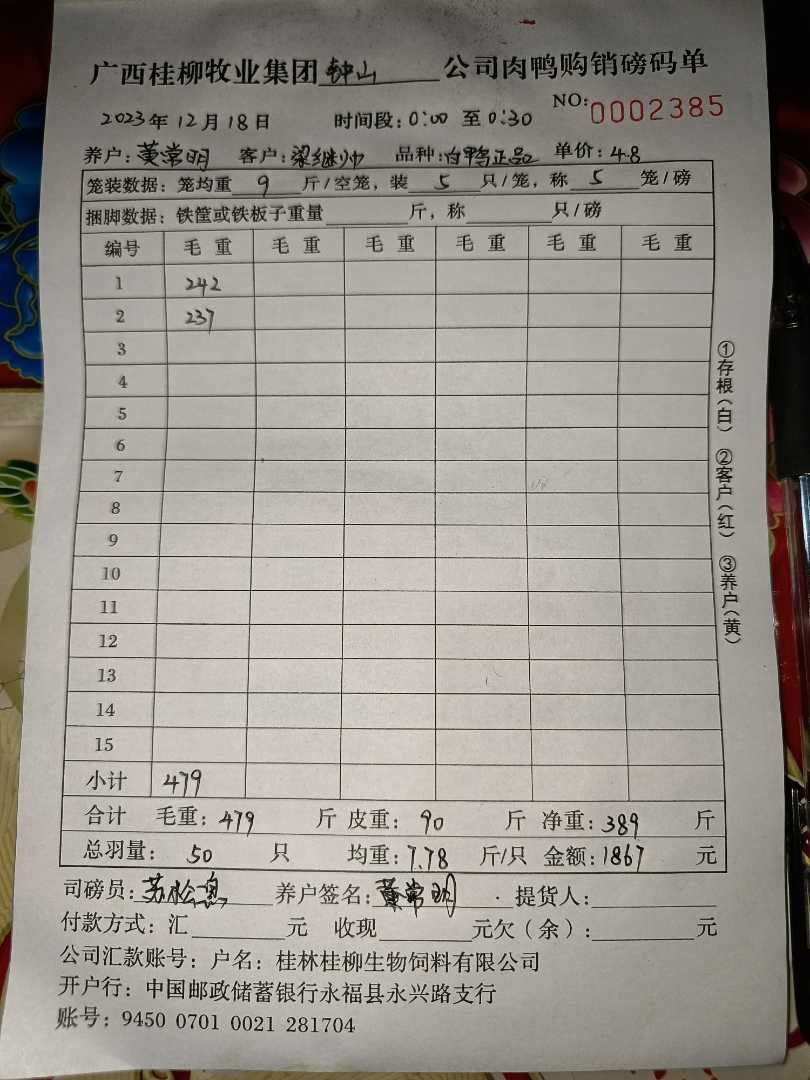 广西桂柳牧业集团钟山公司肉鸭购销磅码单
NO:0002385
2023年12月18日 时间段:0:00 至 0:30
养户:黄常明 客户:梁继帅 品种:白鸭正品 单价:4.8
笼装数据:笼均重 9 斤/空笼,装 5 只/笼,称 5 笼/磅
捆脚数据:铁筐或铁板子重量 斤,称 只/磅
编号 毛重 毛重 毛重 毛重 毛重 毛重
1 242
2 237
3
4
5
6
7
8
9
10
11
12
13
14
15
小计 479
合计 毛重:479 斤 皮重:90 斤 净重:389 斤
总羽量:50 只 均重:7.78 斤/只 金额:1867 元
司磅员:苏 养户签名:黄常明 提货人:
付款方式:汇 元 收现 元欠(余): 元
公司汇款账号:户名:桂林桂柳生物饲料有限公司
开户行:中国邮政储蓄银行永福县永兴路支行
账号:9450 0701 0021 281704
①存根(白) ②客户(红) ③养户(黄)